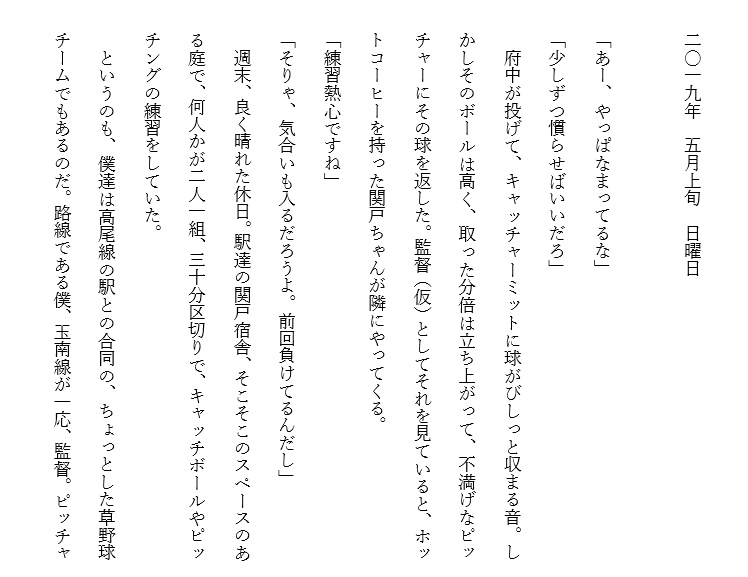 二〇一九年　五月上旬　日曜日
「あー、やっぱなまってるな」
「少しずつ慣らせばいいだろ」
　府中が投げて、キャッチャーミットに球がびしっと収まる音。し
かしそのボールは高く、取った分倍は立ち上がって、不満げなピッ
チャーにその球を返した。監督（仮）としてそれを見ていると、ホッ
トコーヒーを持った関戸ちゃんが隣にやってくる。
「練習熱心ですね」
「そりゃ、気合いも入るだろうよ。前回負けてるんだし」
　週末、良く晴れた休日。駅達の関戸宿舎、そこそこのスペースのあ
る庭で、何人かが二人一組、三十分区切りで、キャッチボールやピッ
チングの練習をしていた。
　というのも、僕達は高尾線の駅との合同の、ちょっとした草野球
チームでもあるのだ。路線である僕、玉南線が一応、監督。ピッチャ